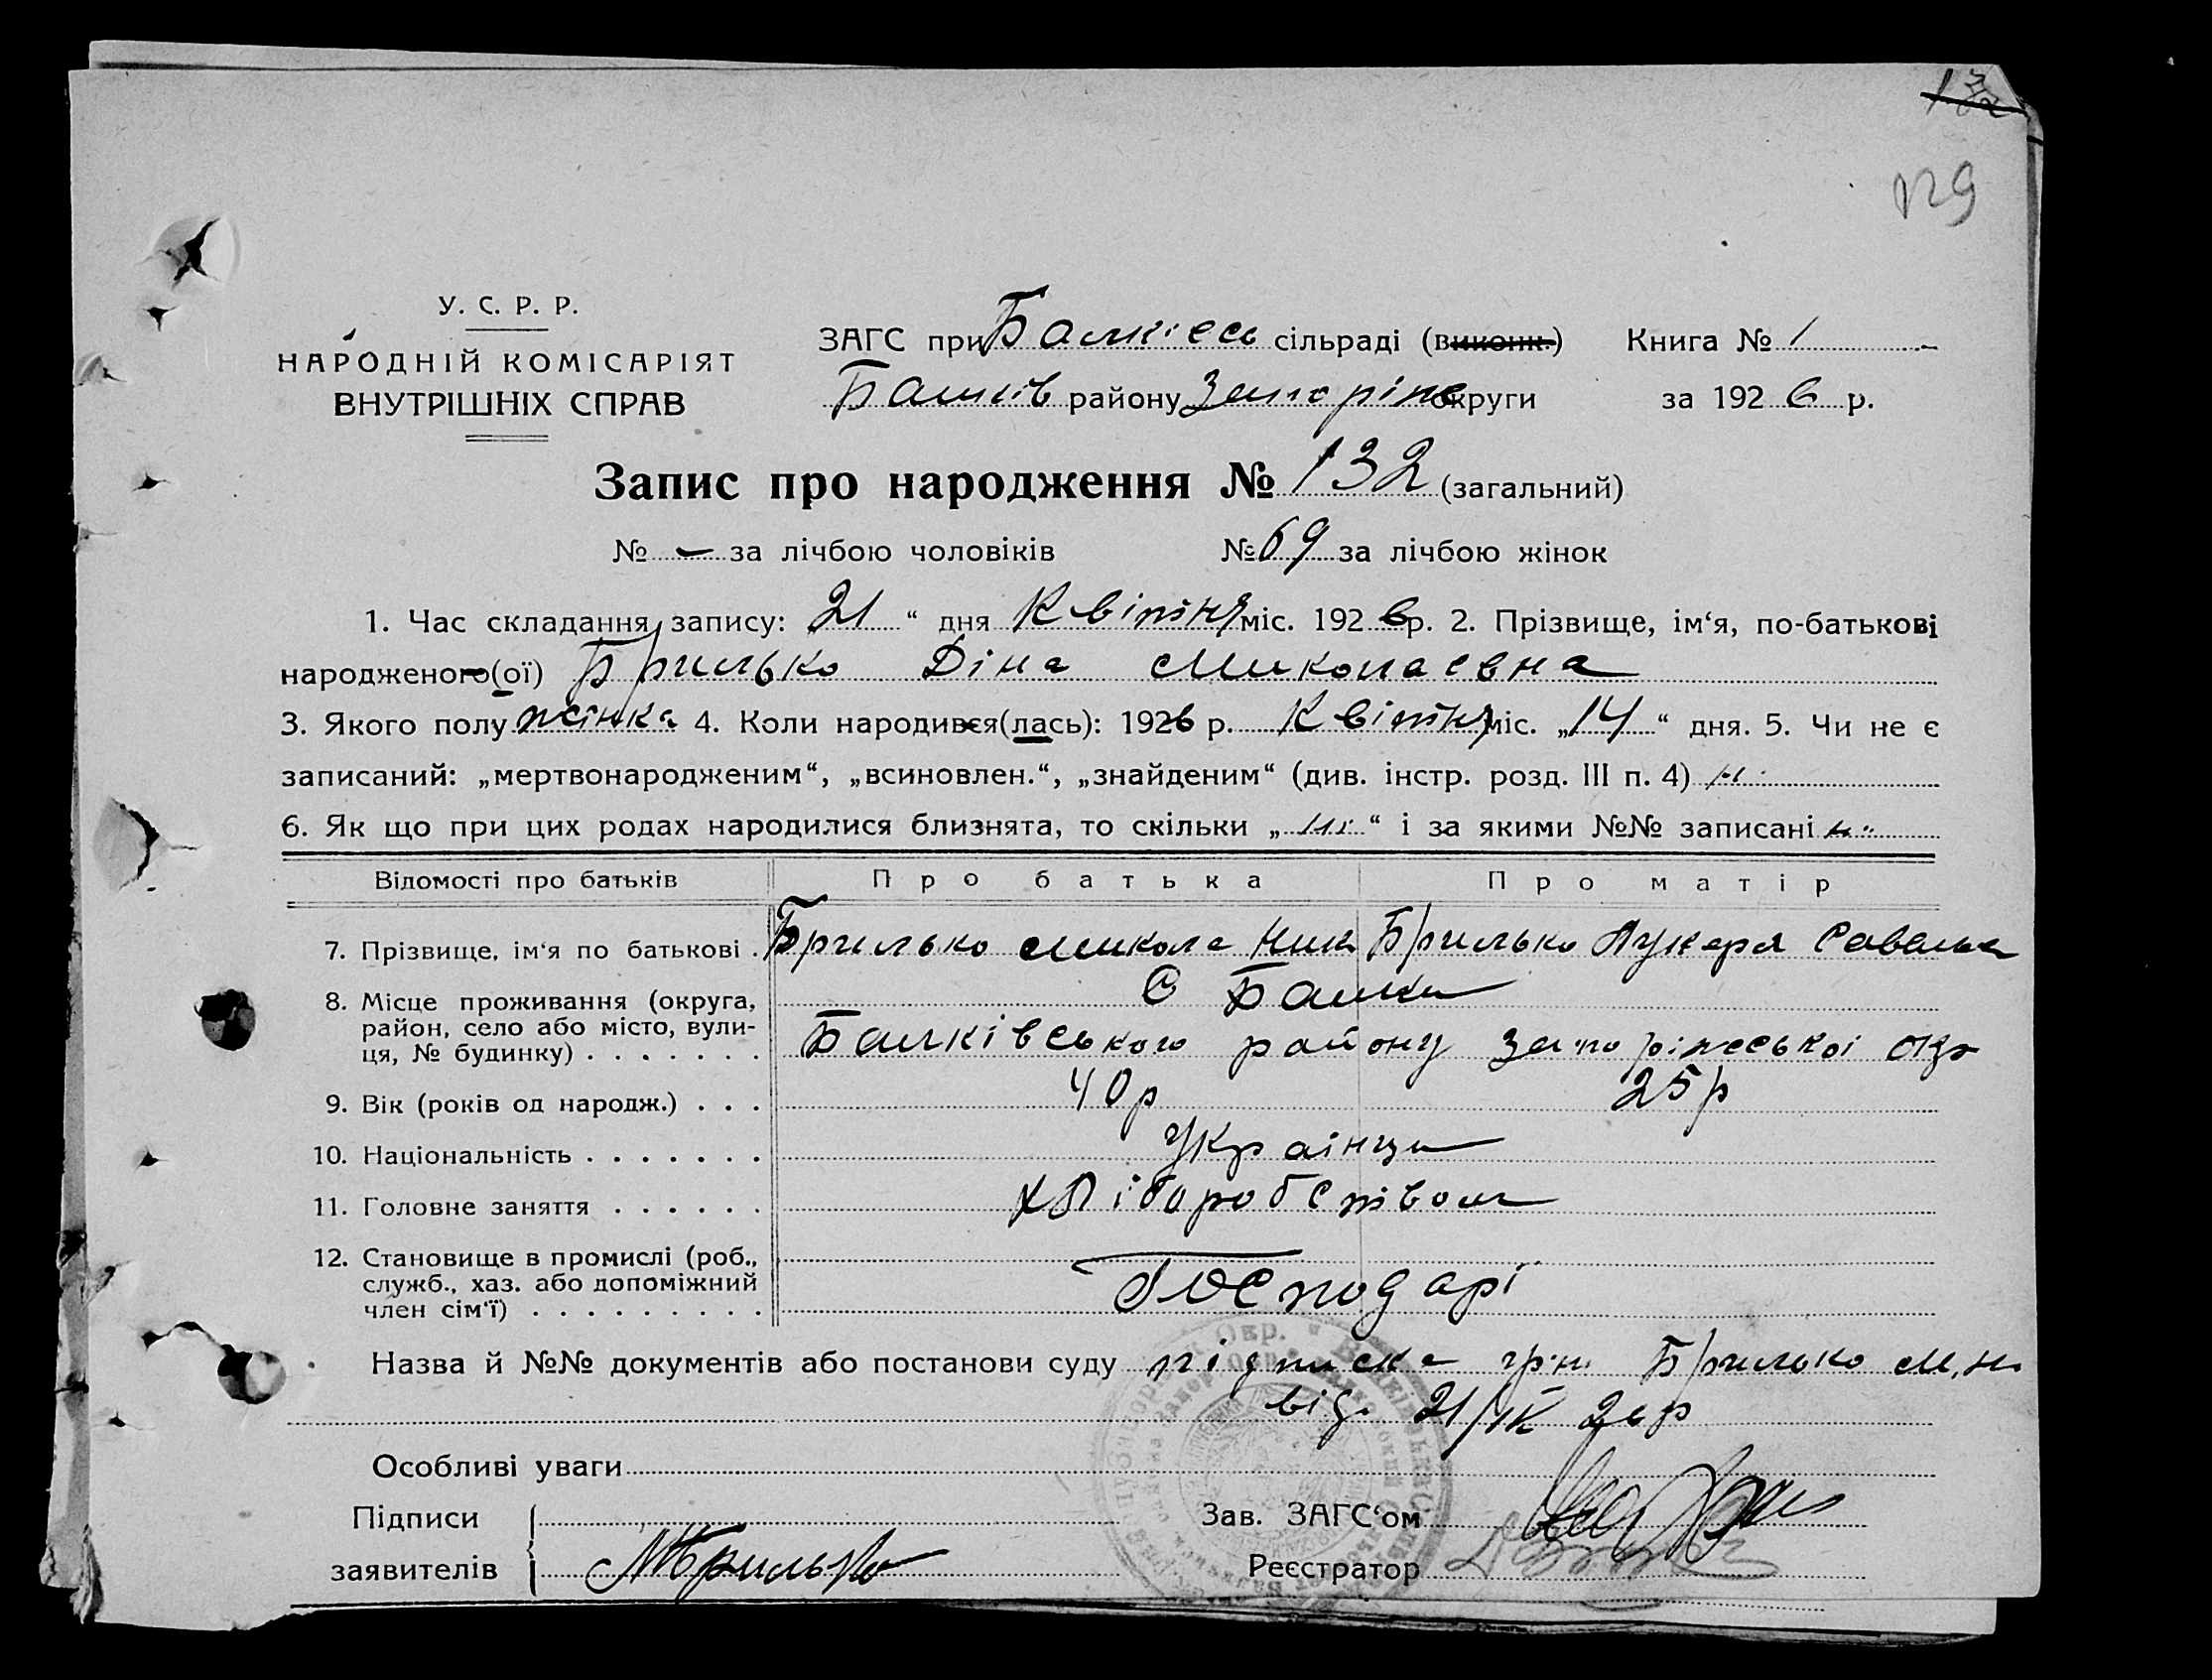 129
У. С. Р. Р.
НАРОДНІЙ КОМІСАРІЯТ
ВНУТРІШНІХ СПРАВ
ЗАГС при Балківсь сільраді (виконк.) Книга № 1
Балків району Запоріж округи за 1926 р.
Запис про народження № 132 (загальний)
№ – за лічбою чоловіків № 69 за лічбою жінок
1. Час складання запису: 21 “ дня Квітня міс. 1926 р. 2. Прізвище, ім‘я, по-батькові
народженого(ої) Брилько Діна Миколаєвна
3. Якого полу жінка 4. Коли народився(лась): 1926 р. Квітня міс. „14“ дня. 5. Чи не є
записаний: „мертвонародженим“, „всиновлен.“, „знайденим“ (див. інстр. розд. III п. 4) ні
6. Як що при цих родах народилися близнята, то скільки „ні“ і за якими №№ записані ні
Відомості про батьків Про батька Про матір
7. Прізвище, ім‘я по батькові . Брилько Микола Ник Брилько Лукеря Савельє
8. Місце проживання (округа, С Балки
район, село або місто, вули-
ця, № будинку) . . . . . . . Балківського району Запоріжської окр
9. Вік (років од народж.) . . . 40 р 25 р
10. Національність . . . . . . . Українци
11. Головне заняття . . . . . . Хліборобством
12. Становище в промислі (роб.,
служб., хаз. або допоміжний
член сім‘ї) . . . . . . . . . Господарі
Назва й №№ документів або постанови суду підписка гр-н. Брилько М. Н.
від. 21/IV 26 р
Особливі уваги
Підписи
заявителів МБрилько
Зав. ЗАГС‘ом
Реєстратор